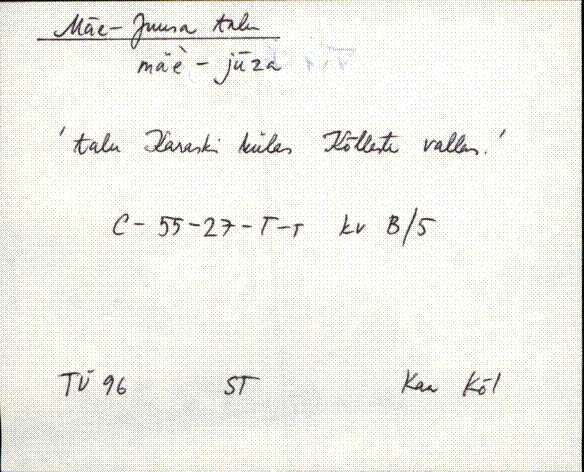 Mäe-Juusa talu
mäè - jūza
'talu Karaski külas Kõlleste vallas.'
C-55-27-T-т kv B/5
TÜ 96 ST Kan Kõl